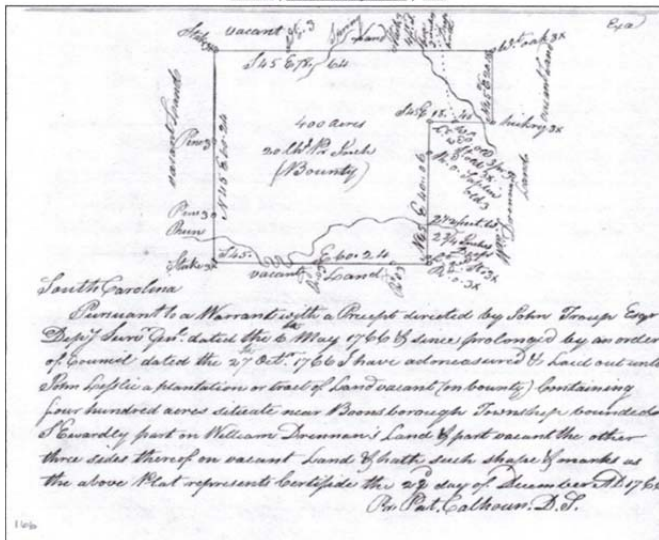 vacant
Spring
Land
Exd
Stake 3x
Wt. oak 3x
S 45 E 78, 64
400 acres
20 Chs. Pr. Inch
(Bounty)
S 45 E 18. 40
hickory 3x
vacant Land
vacant Lands
Pine 3
N 45 E 60.24
N 45 E 40.04
Pine 3
Run
27 feet wd.
2 3/4 Inches
Deep
Wm. Drennans Land
Stake 3x
S 45.
E 60.24
vacant
Land
South Carolina
Pursuant to a Warrant with a Precept directed by John Troup Esqr
Depy. Survr. Genl. dated the 6th May 1766 & since prolonged by an order
of Council dated the 27th Octr. 1766 I have admeasured & Laid out unto
John Leslie a plantation or tract of Land vacant (on bounty) Containing
four hundred acres situate near Boonsborough Township bounded
NEwardly part on William Drennan's Land & part vacant the other
three sides thereof on vacant Land & hath such shape & marks as
the above Plat represents Certifide the 22d day of December AD 1766
Pr. Pat. Calhoun. D. S.
166